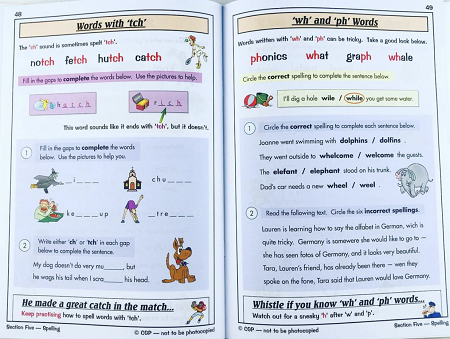 48
Words with 'tch'
The 'ch' sound is sometimes spelt 'tch'.
notch fetch hutch catch
Fill in the gaps to complete the words below. Use the pictures to help.
hatch
rich
This word sounds like it ends with 'tch', but it doesn't.
1
Fill in the gaps to complete the words
below. Use the pictures to help you.
_ i _ _ _
chu _ _ _
ke _ _ _ up
_ tre _ _ _
2
Write either 'ch' or 'tch' in each gap
below to complete the sentence.
My dog doesn't do very mu____, but
he wags his tail when I scra____ his head.
He made a great catch in the match...
Keep practising how to spell words with 'tch'.
Section Five — Spelling
© CGP — not to be photocopied
49
'wh' and 'ph' Words
Words written with 'wh' and 'ph' can be tricky. Take a good look below.
phonics what graph whale
Circle the correct spelling to complete the sentence below.
I'll dig a hole wile / while you get some water.
1
Circle the correct spelling to complete each sentence below.
Joanne went swimming with dolphins / dolfins .
They went outside to whelcome / welcome the guests.
The elefant / elephant stood on his trunk.
Dad's car needs a new wheel / weel .
2
Read the following text. Circle the six incorrect spellings.
Lauren is learning how to say the alfabet in German, wich is
quite tricky. Germany is somewere she would like to go —
she has seen fotos of Germany, and it looks very beautiful.
Tara, Lauren's friend, has already been there — wen they
spoke on the fone, Tara said that Lauren would love Germany.
Whistle if you know 'wh' and 'ph' words...
Watch out for a sneaky 'h' after 'w' and 'p'.
© CGP — not to be photocopied
Section Five — Spelling